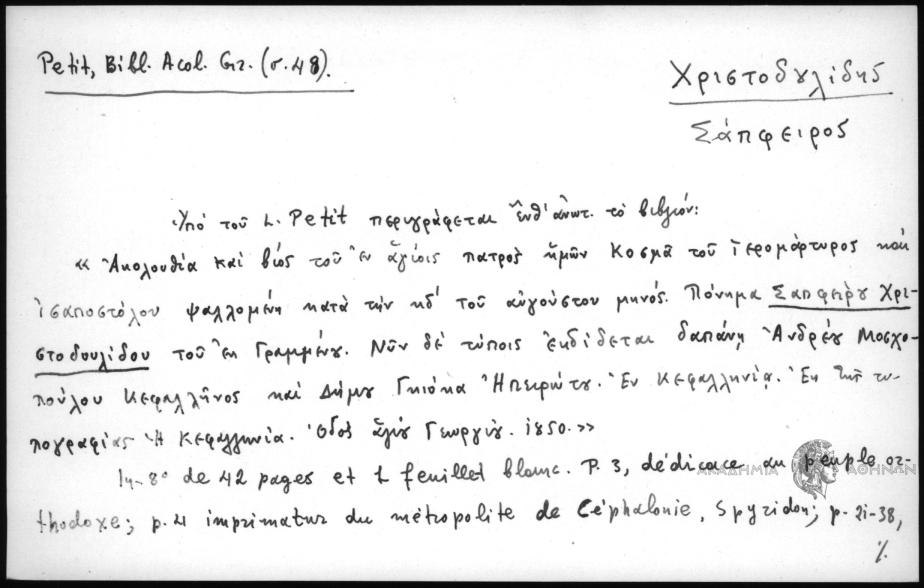 Petit, Bibl. Acol. Gr. (σ. 48).
Χριστοδουλίδης
Σάπφειρος
Ὑπὸ τοῦ L. Petit περιγράφεται ἔνθ' ἀνωτ. τὸ βιβλίον:
« Ἀκολουθία καὶ βίος τοῦ ἐν ἁγίοις πατρὸς ἡμῶν Κοσμᾶ τοῦ ἱερομάρτυρος καὶ
ἰσαποστόλου ψαλλομένη κατὰ τὴν κδ' τοῦ αὐγούστου μηνός. Πόνημα Σαπφείρου Χρι-
στοδουλίδου τοῦ ἐκ Γραμμένου. Νῦν δὲ τύποις ἐκδίδεται δαπάνῃ Ἀνδρέου Μοσχο-
πούλου Κεφαλλῆνος καὶ Δήμου Γκιόκα Ἠπειρώτου. Ἐν Κεφαλληνίᾳ. Ἐκ τῆς τυ-
πογραφίας Ἡ Κεφαλληνία. Ὁδὸς ἁγίου Γεωργίου. 1850.»
In-8° de 42 pages et 1 feuillet blanc. P. 3, dédicace au peuple or-
thodoxe; p. 4 imprimatur du métropolite de Céphalonie, Spyridon; p. 21-38,
./.
ΑΚΑΔΗΜΙΑ ΑΘΗΝΩΝ